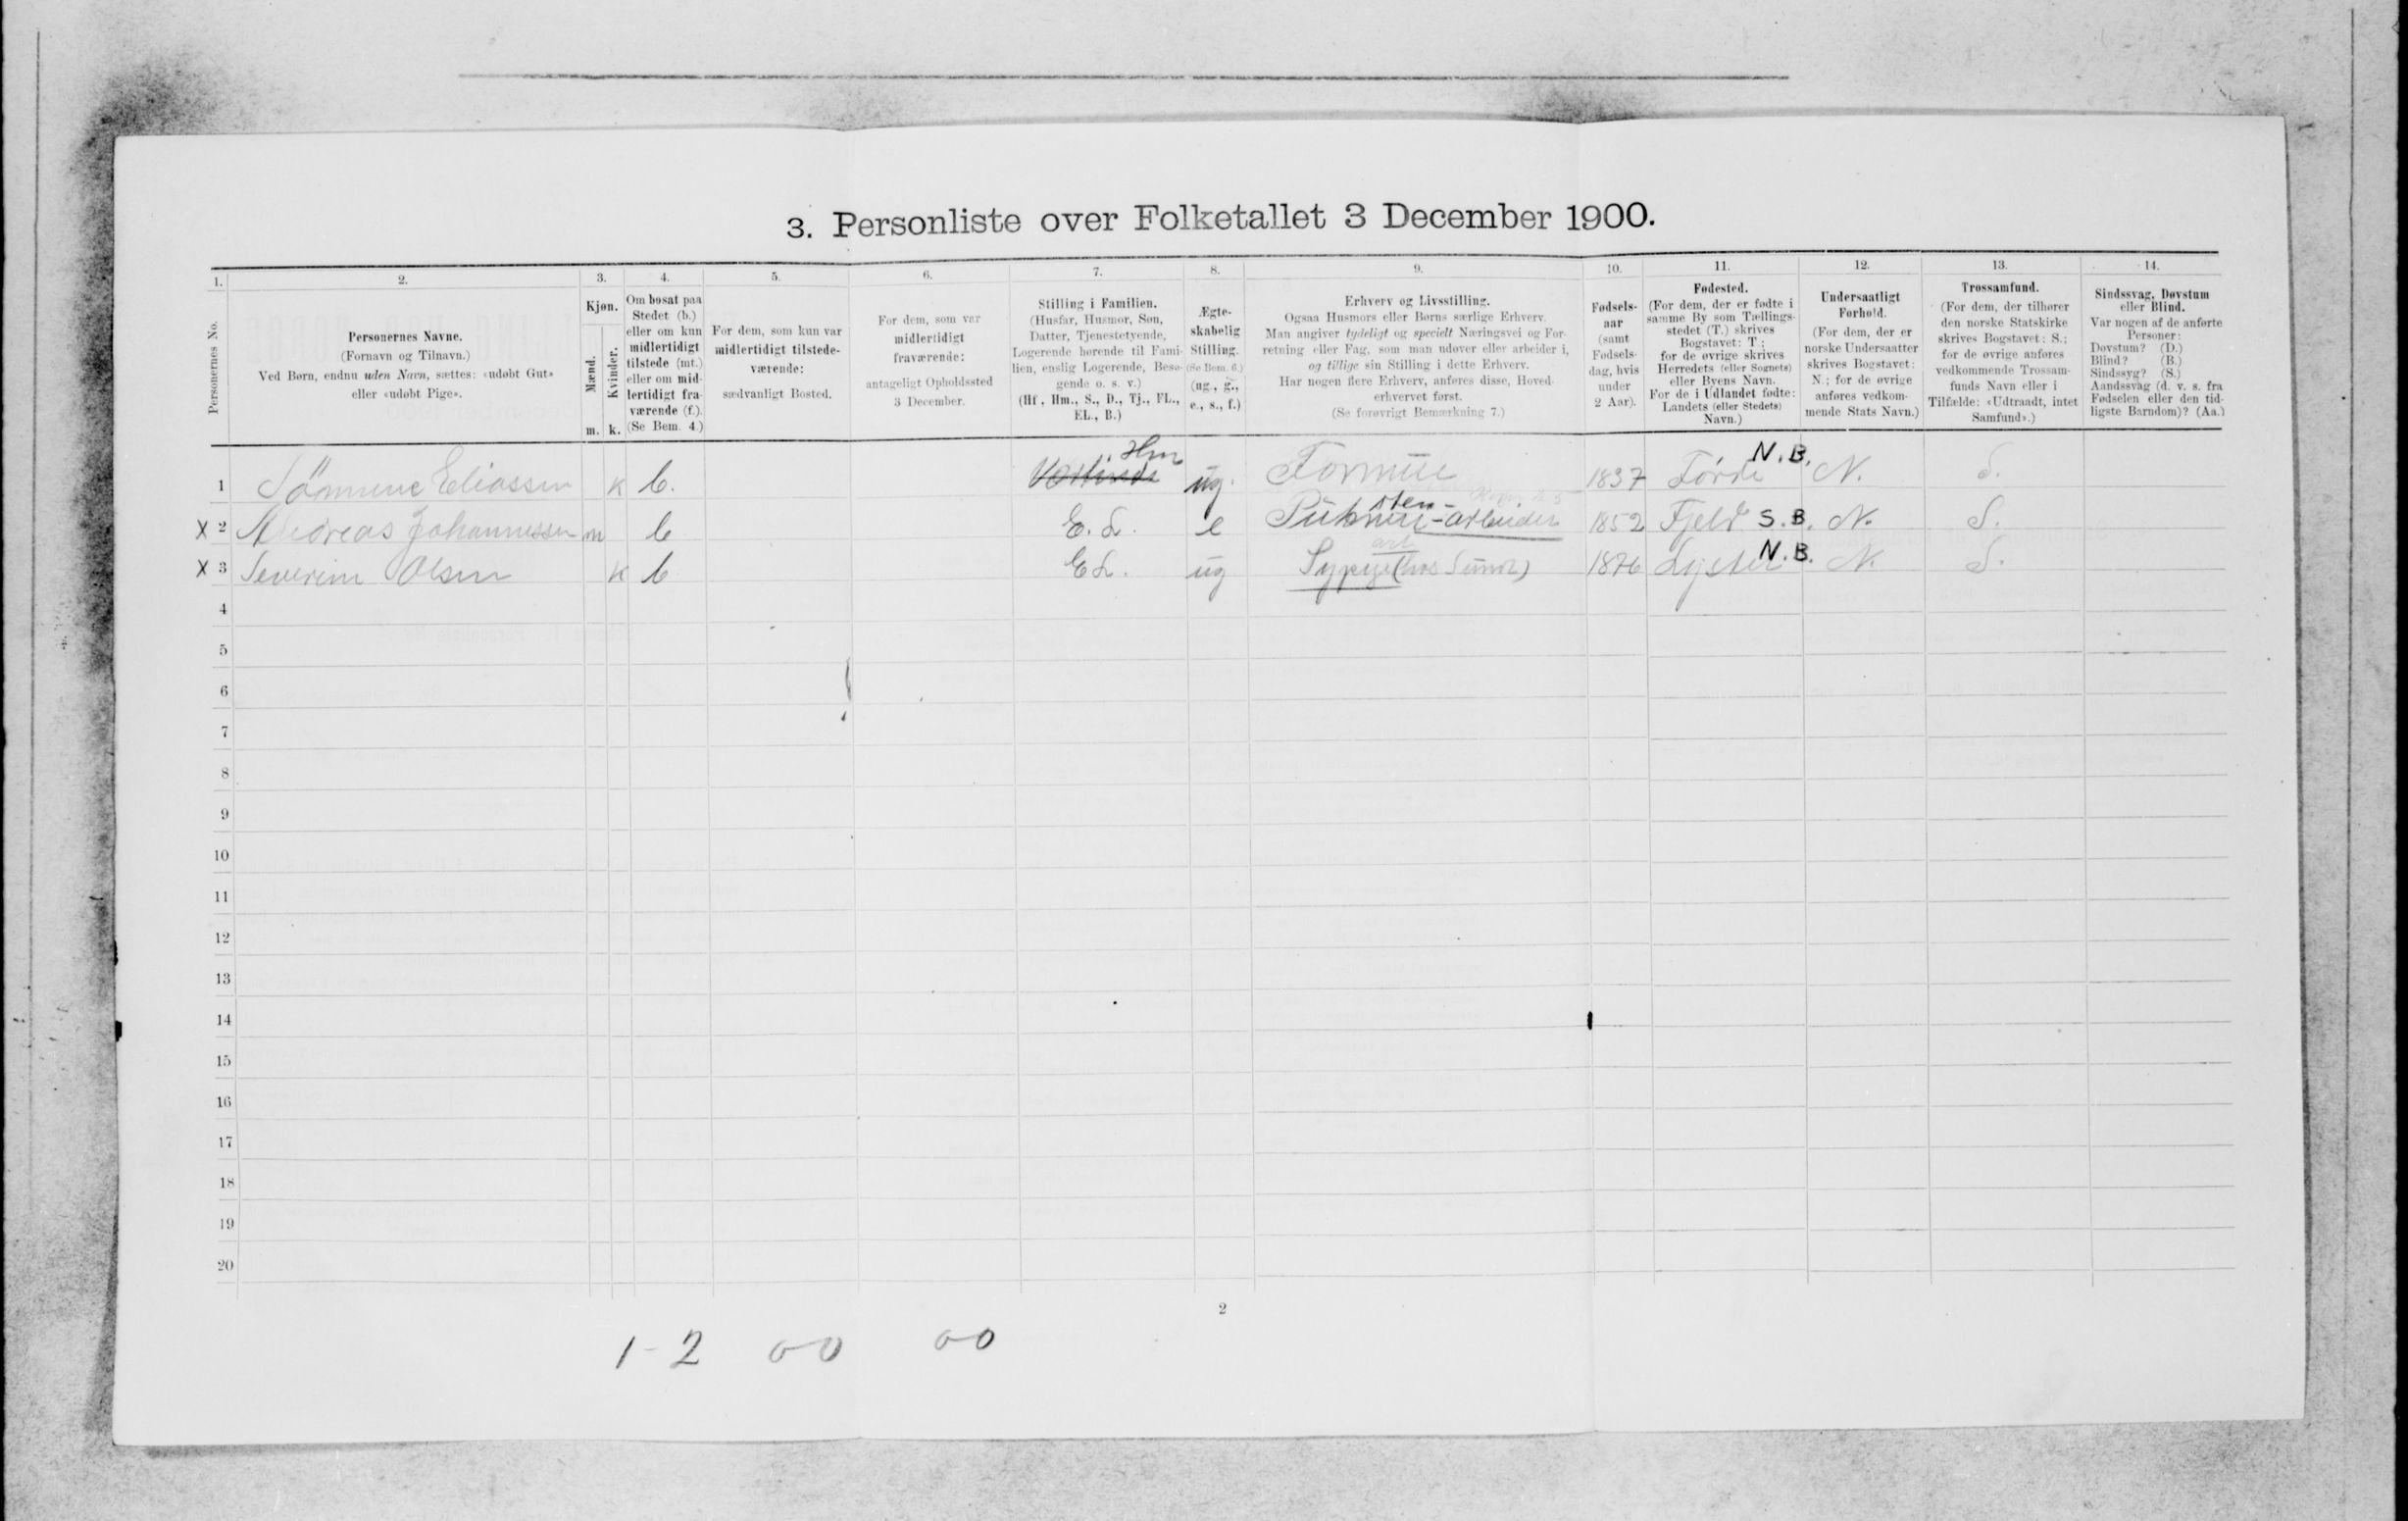 3. Personliste over Folketallet 3 December 1900.
1. 2. 3. 4. 5. 6. 7. 8. 9. 10. 11. 12. 13. 14.
Personernes No.
Personernes Navne.
(Fornavn og Tilnavn.)
Ved Børn, endnu uden Navn, sættes: «udøbt Gut»
eller «udøbt Pige».
Kjøn.
Mænd.
Kvinder.
m. k.
Om bosat paa
Stedet (b.)
eller om kun
midlertidigt
tilstede (mt.)
eller om mid-
lertidigt fra-
værende (f.).
(Se Bem. 4.)
For dem, som kun var
midlertidigt tilstede-
værende:
sædvanligt Bosted.
For dem, som var
midlertidigt
fraværende:
antageligt Opholdssted
3 December.
Stilling i Familien.
(Husfar, Husmor, Søn,
Datter, Tjenestetyende,
Logerende hørende til Fami-
lien, enslig Logerende, Besø-
gende o. s. v.)
(Hf., Hm., S., D., Tj., FL.,
EL., B.)
Ægte-
skabelig
Stilling.
(Se Bem. 6.)
(ug., g.,
e., s., f.)
Erhverv og Livsstilling.
Ogsaa Husmors eller Børns særlige Erhverv.
Man angiver tydeligt og specielt Næringsvei og For-
retning eller Fag, som man udøver eller arbeider i,
og tillige sin Stilling i dette Erhverv.
Har nogen flere Erhverv, anføres disse, Hoved-
erhvervet først.
(Se forøvrigt Bemærkning 7.)
Fødsels-
aar
(samt
Fødsels-
dag, hvis
under
2 Aar).
Fødested.
(For dem, der er fødte i
samme By som Tællings-
stedet (T.) skrives
Bogstavet: T;
for de øvrige skrives
Herredets (eller Sognets)
eller Byens Navn.
For de i Udlandet fødte:
Landets (eller Stedets)
Navn.)
Undersaatligt
Forhold.
(For dem, der er
norske Undersaatter
skrives Bogstavet:
N.; for de øvrige
anføres vedkom-
mende Stats Navn.)
Trossamfund.
(For dem, der tilhører
den norske Statskirke
skrives Bogstavet: S.;
for de øvrige anføres
vedkommende Trossam-
funds Navn eller i
Tilfælde: «Udtraadt, intet
Samfund».)
Sindssvag, Døvstum
eller Blind.
Var nogen af de anførte
Personer:
Døvstum? (D.)
Blind? (B.)
Sindssyg? (S.)
Aandssvag (d. v. s. fra
Fødselen eller den tid-
ligste Barndom)? (Aa.)
Hm N.B.
1 Eliassen k b. Værtinde ug. Formue 1837 Førde N. S.
sten-
X 2 Andreas Johannessen m b E. L. e arbeider 1852 Fjeld S.B. N. S.
arb
X 3 Severine Olsen k b EL. ug Sypige (hos 1876 Lyster N.B. N. S.
4
5
6
7
8
9
10
11
12
13
14
15
16
17
18
19
20
2
1-2 0-0 0-0